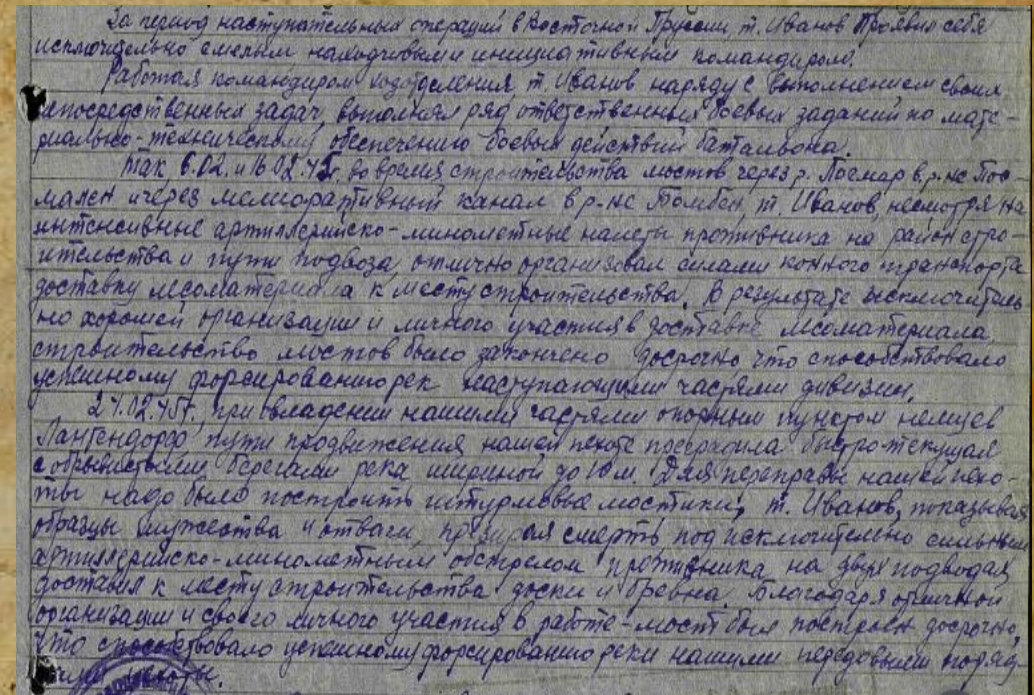 За период наступательных операций в Восточной Пруссии, т. Иванов проявил себя
исключительно смелым находчивым и инициативным командиром.
Работая командиром хозотделения т. Иванов наряду с выполнением своих
непосредственных задач, выполнял ряд ответственных боевых заданий по мате-
риально-техническому обеспечению боевых действий батальона.
Так 6.02. и 16.02.45г. во время строительства мостов через р. в р-не По
ма через мелиоративный канал в р-не т. Иванов, несмотря на
интенсивные артиллерийско-минометные налеты противника на район стро-
ительства и пути подвоза, отлично организовал силами конного транспорта
доставку лесоматериала к месту строительства. В результате исключитель
но хорошей организации и личного участия в доставке лесоматериала
строительство мостов было закончено досрочно, что способствовало
успешному форсированию рек наступающими частями дивизии.
02.45г. при овладении нашими частями опорным пунктом немцев
Лангендорф, пути продвижения нашей пехоте преградила быстротекущая
с обрывистыми берегами река шириной до 10 м. Для переправы нашей пехо-
ты надо было построить штурмовые мостики, т. Иванов, показывая
образцы мужества и отваги, презирая смерть под исключительно сильным
артиллерийско-минометным обстрелом противника на двух подводах
доставил к месту строительства доски и бревна. Благодаря отличной
организации и своего личного участия в работе-мост был построен досрочно,
что способствовало успешному форсированию реки нашими передовыми поряд-
ками пехоты.